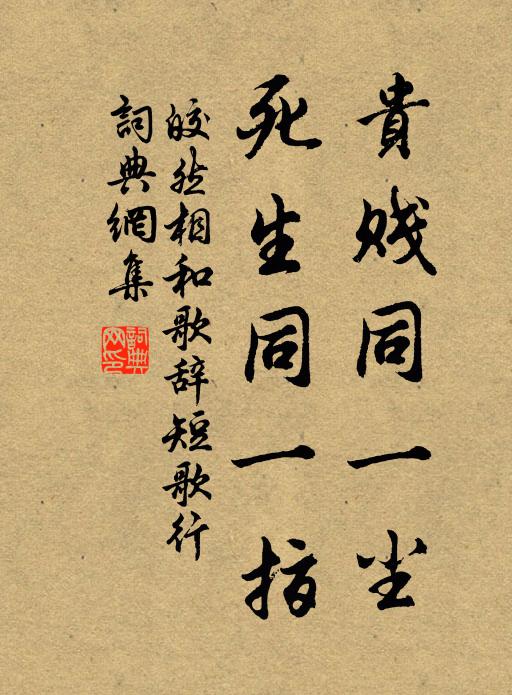 貴贱同一尘
死生同一指
皎然相和歌辞短歌行
詞典網集
詞典网印